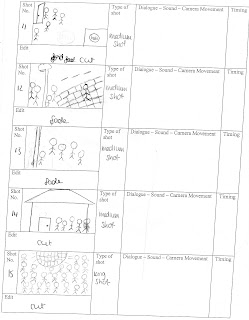 Shot No. Type of shot Dialogue – Sound – Camera Movement Timing
11 medium shot
Edit cut
Shot No. Type of shot Dialogue – Sound – Camera Movement Timing
12 medium shot
Edit fade
Shot No. Type of shot Dialogue – Sound – Camera Movement Timing
13 medium shot
Edit fade
Shot No. Type of shot Dialogue – Sound – Camera Movement Timing
14 medium shot
Edit cut
Shot No. Type of shot Dialogue – Sound – Camera Movement Timing
15 long shot
Edit cut